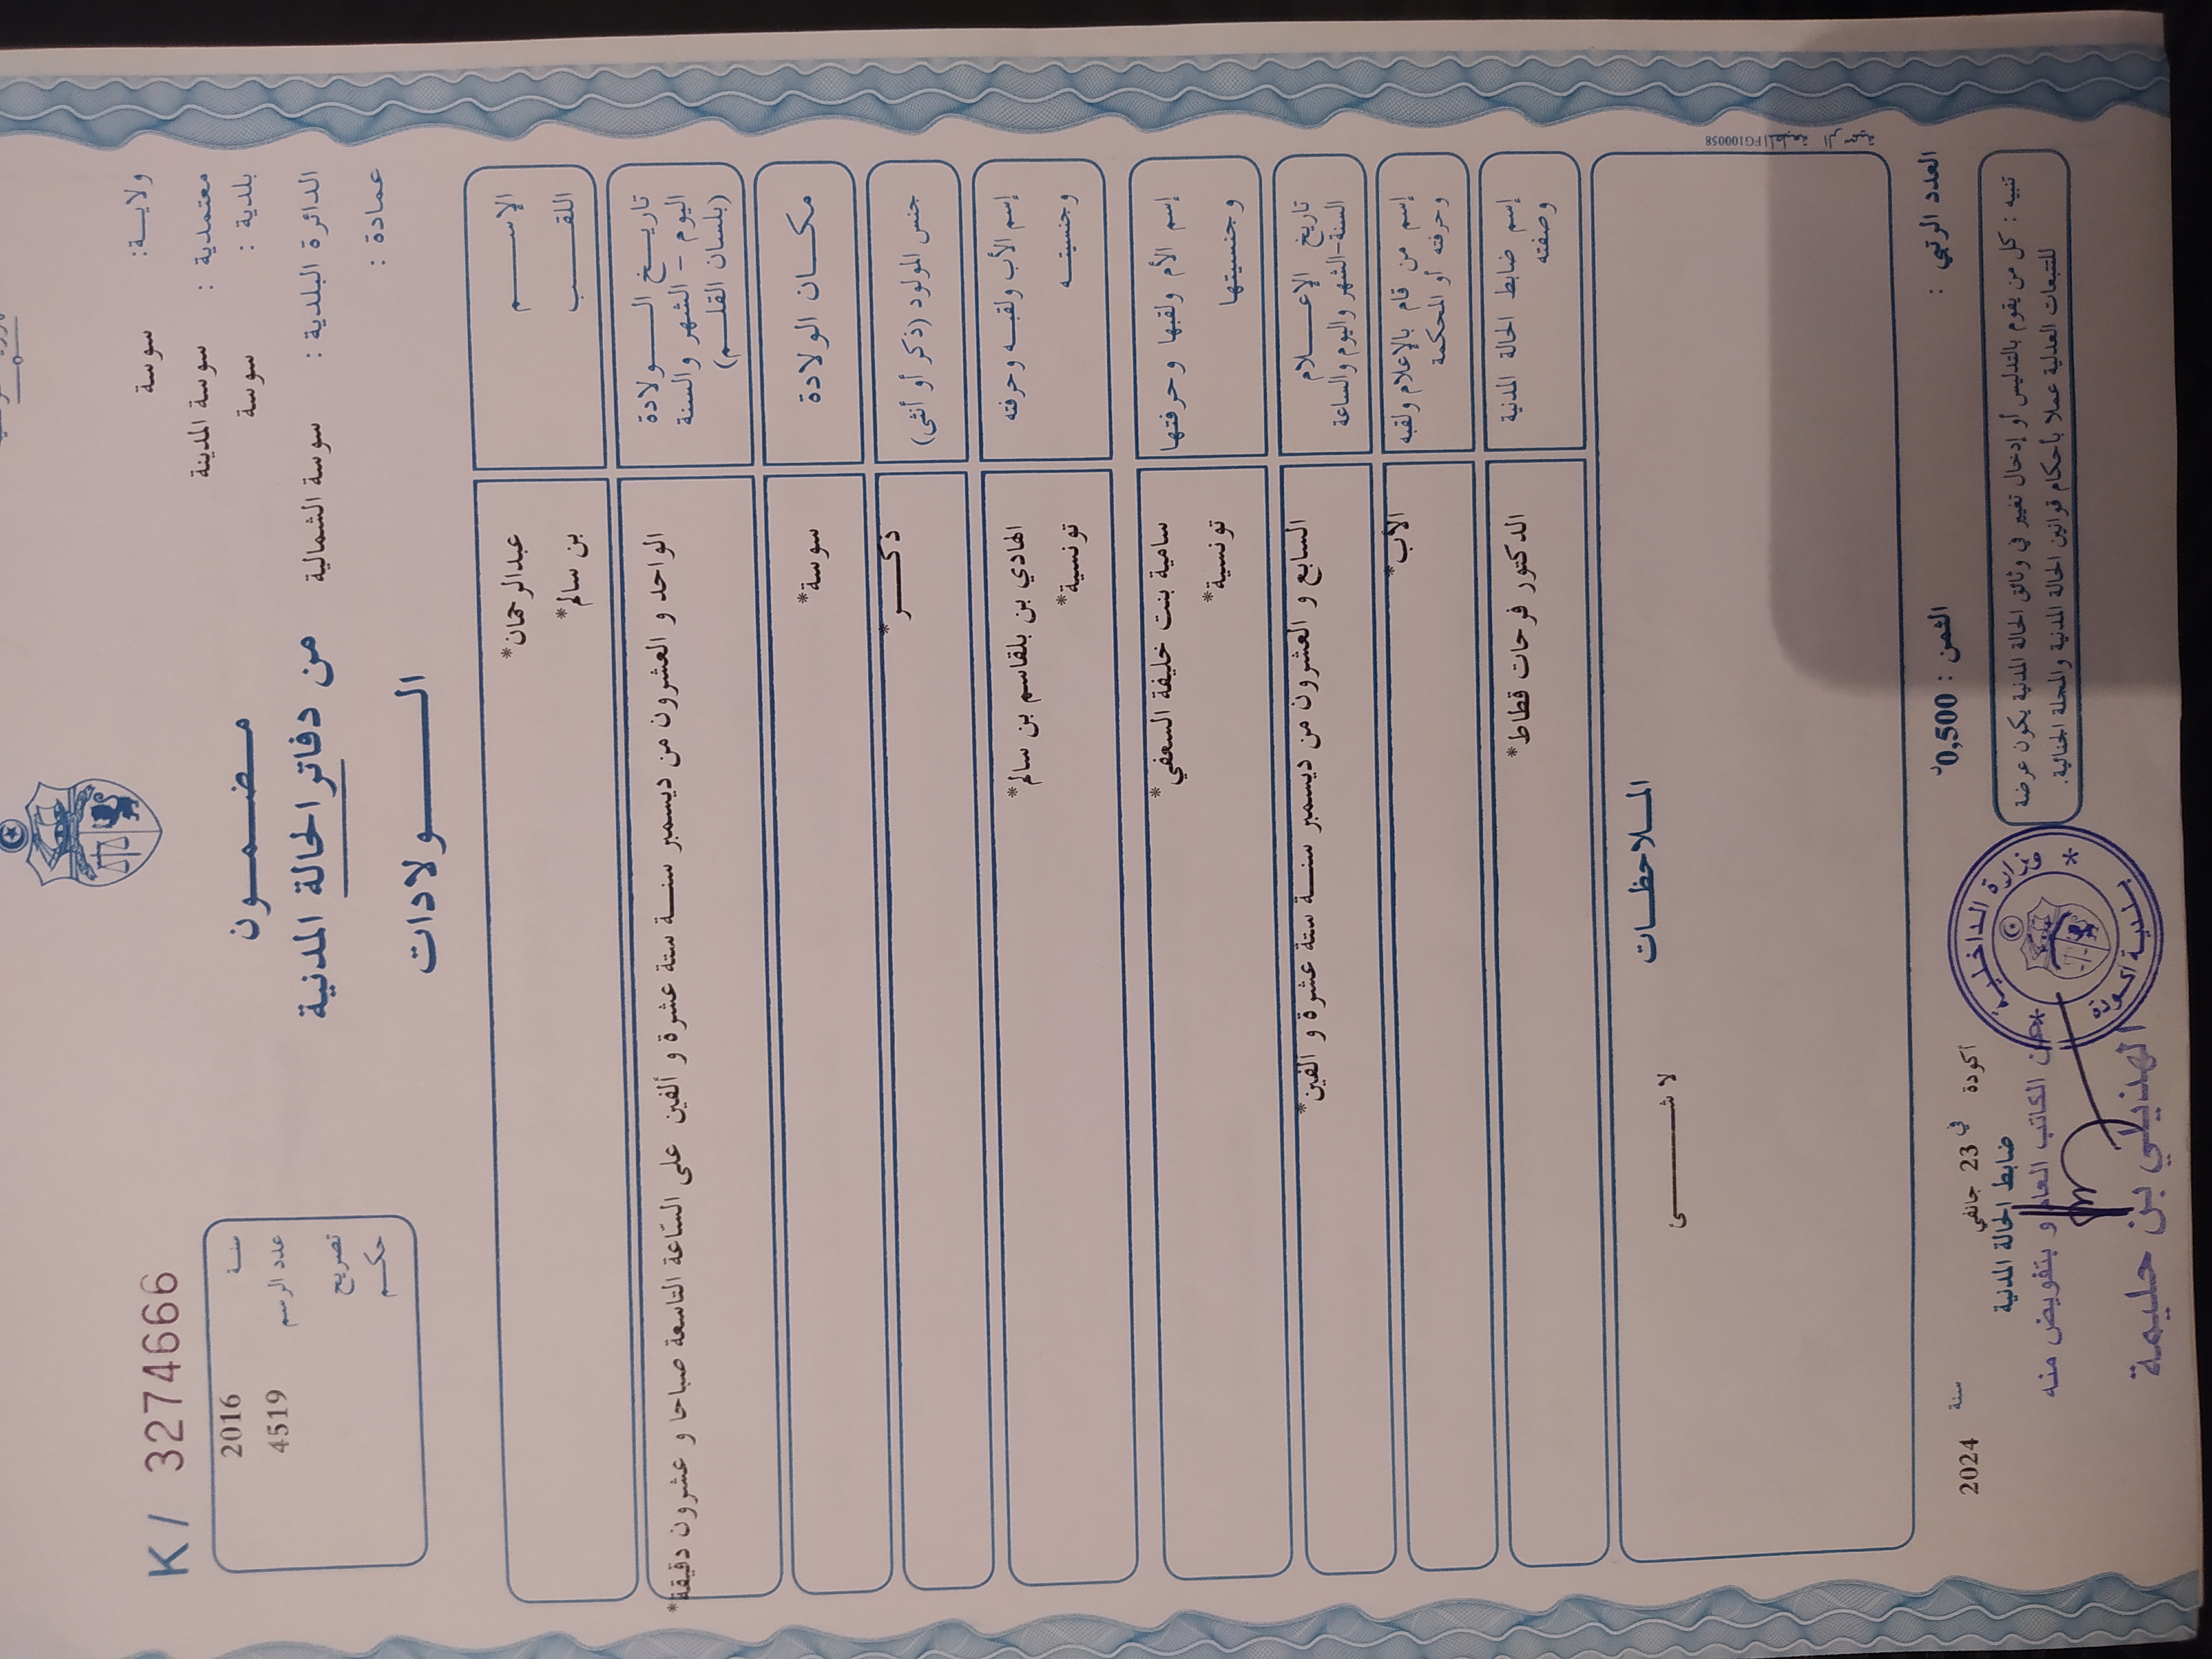 K / 3274666
ولايـة: سوسة
معتمدية : سوسة المدينة
بلدية : سوسة
الدائرة البلدية : سوسة الشمالية
عمادة :
مـضـمـون
من دفاتر الحالة المدنية
الـولادات
سنة 2016
عدد الرسم 4519
تصريح
حكم
الإسـم عبدالرحمان*
اللقـب بن سالم*
تاريـخ الـولادة
اليوم - الشهر والسنة
(بلسان القلـم)
الواحد و العشرون من ديسمبر سنـة ستة عشرة و ألفين على السّاعة التاسعة صباحا و عشرون دقيقة*
مكـان الولادة سوسة*
جنس المولود (ذكر أو أنثى) ذكـر*
إسم الأب ولقبـه وحرفته الهادي بن بلقاسم بن سالم*
وجنسيتـه تونسية*
إسم الأم ولقبها وحرفتها سامية بنت خليفة السعفي*
وجنسيتها تونسية*
تاريخ الإعـلام
السنة-الشهر واليوم والساعة
السابع و العشرون من ديسمبر سنـة ستة عشرة و ألفين*
إسم من قام بالإعلام ولقبه
وحرفته أو المحكمة
الأب*
إسم ضابط الحالة المدنية
وصفته
الدكتور فرحات قطاط*
المـلاحظـات
لا شـئ
PG100058
العدد الرتبي :
الثمن : 0,500د
أكودة في 23 جانفي سنة 2024
ضابط الحالة المدنية
تنبيه : كل من يقوم بالتدليس أو إدخال تغيير في وثائق الحالة المدنية يكون عرضة
للتتبعات العدلية عملا بأحكام قوانين الحالة المدنية والمجلة الجنائية.
وزارة الداخلية
بلدية أكودة
عن الكاتب العام و بتفويض منه
الهذيلي بن حليمة